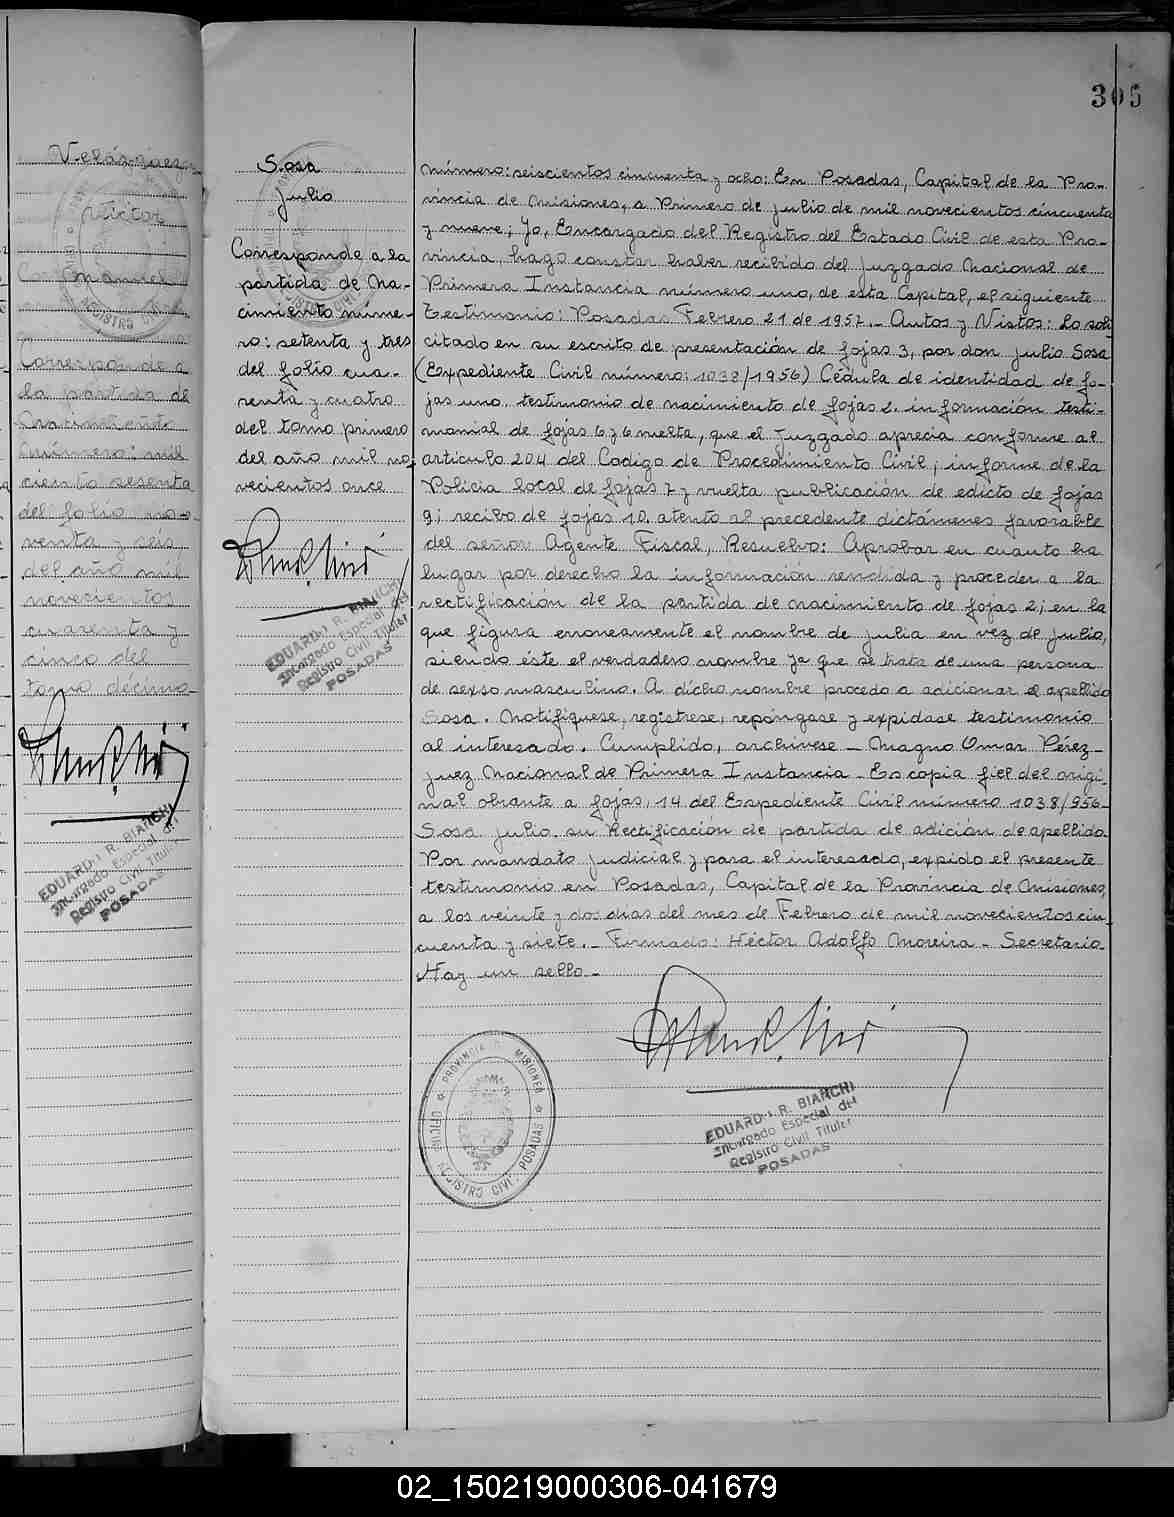 305
Velázquez
Victor
Manuel
Corresponde a
la partida de
Nacimiento
número: mil
ciento sesenta
del folio no-
venta y seis
del año mil
novecientos
cuarenta y
cinco del
tomo décimo
EDUARDO R. BIANCHI
Encargado Especial del
Registro Civil Titular
POSADAS
Sosa
Julio
Corresponde a la
partida de Na-
cimiento núme-
ro: setenta y tres
del folio cua-
renta y cuatro
del tomo primero
del año mil no-
vecientos once
EDUARDO R. BIANCHI
Encargado Especial del
Registro Civil Titular
POSADAS
número: seiscientos cincuenta y ocho: En Posadas, Capital de la Pro-
vincia de Misiones, a Primero de Julio de mil novecientos cincuenta
y nueve; Yo, Encargado del Registro del Estado Civil de esta Pro-
vincia, hago constar haber recibido del Juzgado Nacional de
Primera Instancia número uno, de esta Capital, el siguiente
Testimonio: Posadas Febrero 21 de 1957.- Autos y Vistos: Lo soli
citado en su escrito de presentación de fojas 3, por don Julio Sosa
(Expediente Civil número: 1038/1956) Cédula de identidad de fo-
jas uno, testimonio de nacimiento de fojas 2. información testi-
monial de fojas 6 y 6 vuelta, que el Juzgado aprecia conforme al
articulo 204 del Codigo de Procedimiento Civil; informe de la
Policia local de fojas 7 y vuelta publicación de edicto de fojas
9; recibo de fojas 10. atento al precedente dictámenes favorable
del señor Agente Fiscal, Resuelvo: Aprobar en cuanto ha
lugar por derecho la información rendida y proceder a la
rectificación de la partida de nacimiento de fojas 2; en la
que figura erroneamente el nombre de Julia en vez de Julio,
siendo éste el verdadero nombre ya que se trata de una persona
de sexso masculino. A dicho nombre procedo a adicionar el apellido
Sosa. Notifiquese, registrese, repóngase y expidase testimonio
al interesado. Cumplido, archivese - Magno Omar Pérez-
Juez Nacional de Primera Instancia - Es copia fiel del origi-
nal obrante a fojas, 14 del Expediente Civil número 1038/956-
Sosa Julio. su Rectificación de partida de adición de apellido
Por mandato judicial y para el interesado, expido el presente
testimonio en Posadas, Capital de la Provincia de Misiones,
a los veinte y dos dias del mes de Febrero de mil novecientos cin-
cuenta y siete.- Firmado: Héctor Adolfo Moreira - Secretario
Hay un sello -
PROVINCIA DE MISIONES
OFICINA REGISTRO CIVIL POSADAS
EDUARDO R. BIANCHI
Encargado Especial del
Registro Civil Titular
POSADAS
02_150219000306-041679